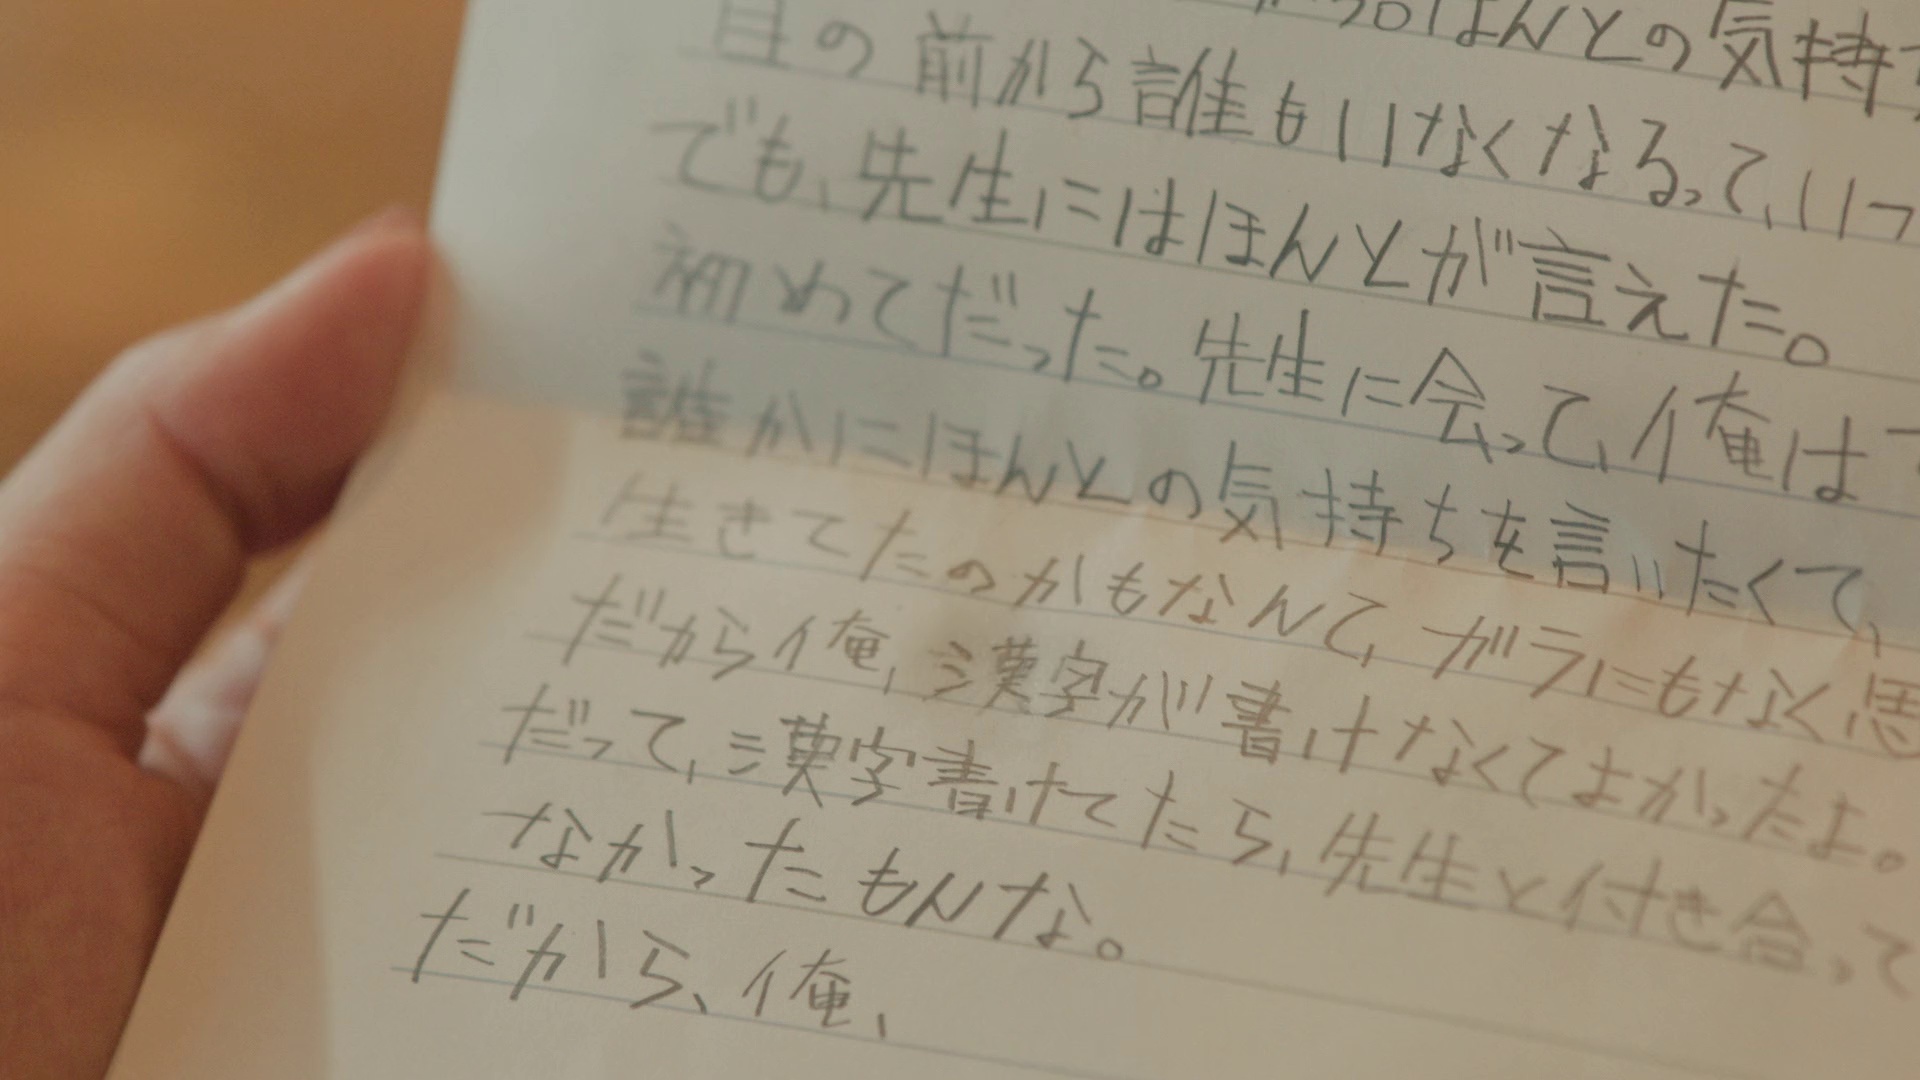 ほんとの気持ち
目の前から誰もいなくなるって、いつ
でも、先生にはほんとが言えた。
初めてだった。先生に会って、俺は
誰かにほんとの気持ちを言いたくて、
生きてたのかもなんて、ガラにもなく思
だから俺、漢字が書けなくてよかったよ。
だって、漢字書けてたら、先生と付き合って
なかったもんな。
だから、俺、